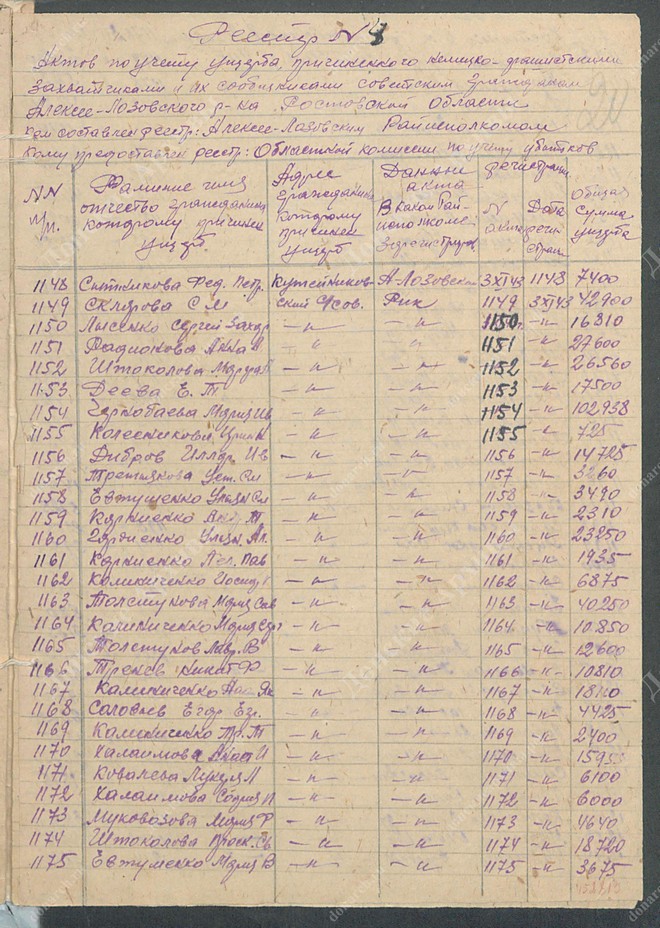 Реестр N 4
Актов по учету ущерба причиненного немецко-фашистскими
захватчиками и их сообщниками советским гражданам
Алексее-Лозовского р-на Ростовской области
кем составлен реестр: Алексее-Лозовским Райисполкомом
кому предоставлен реестр: Областной комиссии по учету убытков
NN п/п. Фамилие имя отчество гражданина которому причинен ущерб. Адрес гражданина которому причинен ущерб Данные акта В каком Рай- исполкоме зарегистрирован регистрац. N акта Дата регистрац. Общая сумма ущерба
1148 Сытникова Фед. Петр. Кутейников- А Лозовск 3 XI 43 1143 7400
1149 Склярова С М ский с/сов. Рик 1149 3 XI 43 42900
1150 Лысенко Сергей Захар -"- -"- 1150 -"- 16810
1151 Радионова Анна -"- -"- 1151 -"- 27600
1152 Штоколова -"- -"- 1152 -"- 26560
1153 Деева Е. Т -"- -"- 1153 -"- 17500
1154 Мария Ив -"- -"- 1154 -"- 102938
1155 Колесникова -"- -"- 1155 -"- 725
1156 Дибров Иллар Ив -"- -"- 1156 -"- 14725
1157 Третьякова Уст. См -"- -"- 1157 -"- 3260
1158 Евтушенко Ульян См -"- -"- 1158 -"- 3490
1159 Карпиенко Т -"- -"- 1159 -"- 2310
1160 Гордиенко Ульян. Ал. -"- -"- 1160 -"- 23250
1161 Карпиенко Пав -"- -"- 1161 -"- 1935
1162 Калиниченко -"- -"- 1162 -"- 6875
1163 Толстунова Мария Сав -"- -"- 1163 -"- 40250
1164 Калиниченко Мария -"- -"- 1164 -"- 10.850
1165 Толстунов Лавр. В -"- -"- 1165 -"- 12600
1166 Никит Ф -"- -"- 1166 -"- 10810
1167 Калиниченко Як -"- -"- 1167 -"-
1168 Соловьев Егор Ег. -"- -"- 1168 -"- 4425
1169 Калиниченко Т -"- -"- 1169 -"- 2400
1170 Халаимова И -"- -"- 1170 -"-
1171 Ковалева Лукер Л -"- -"- 1171 -"- 6100
1172 Халаимова София И -"- -"- 1172 -"- 6000
1173 Муковозова Мария Ф -"- -"- 1173 -"- 4640
1174 Штоколова Проск. -"- -"- 1174 -"- 18720
1175 Евтушенко Мария В -"- -"- 1175 -"- 3675